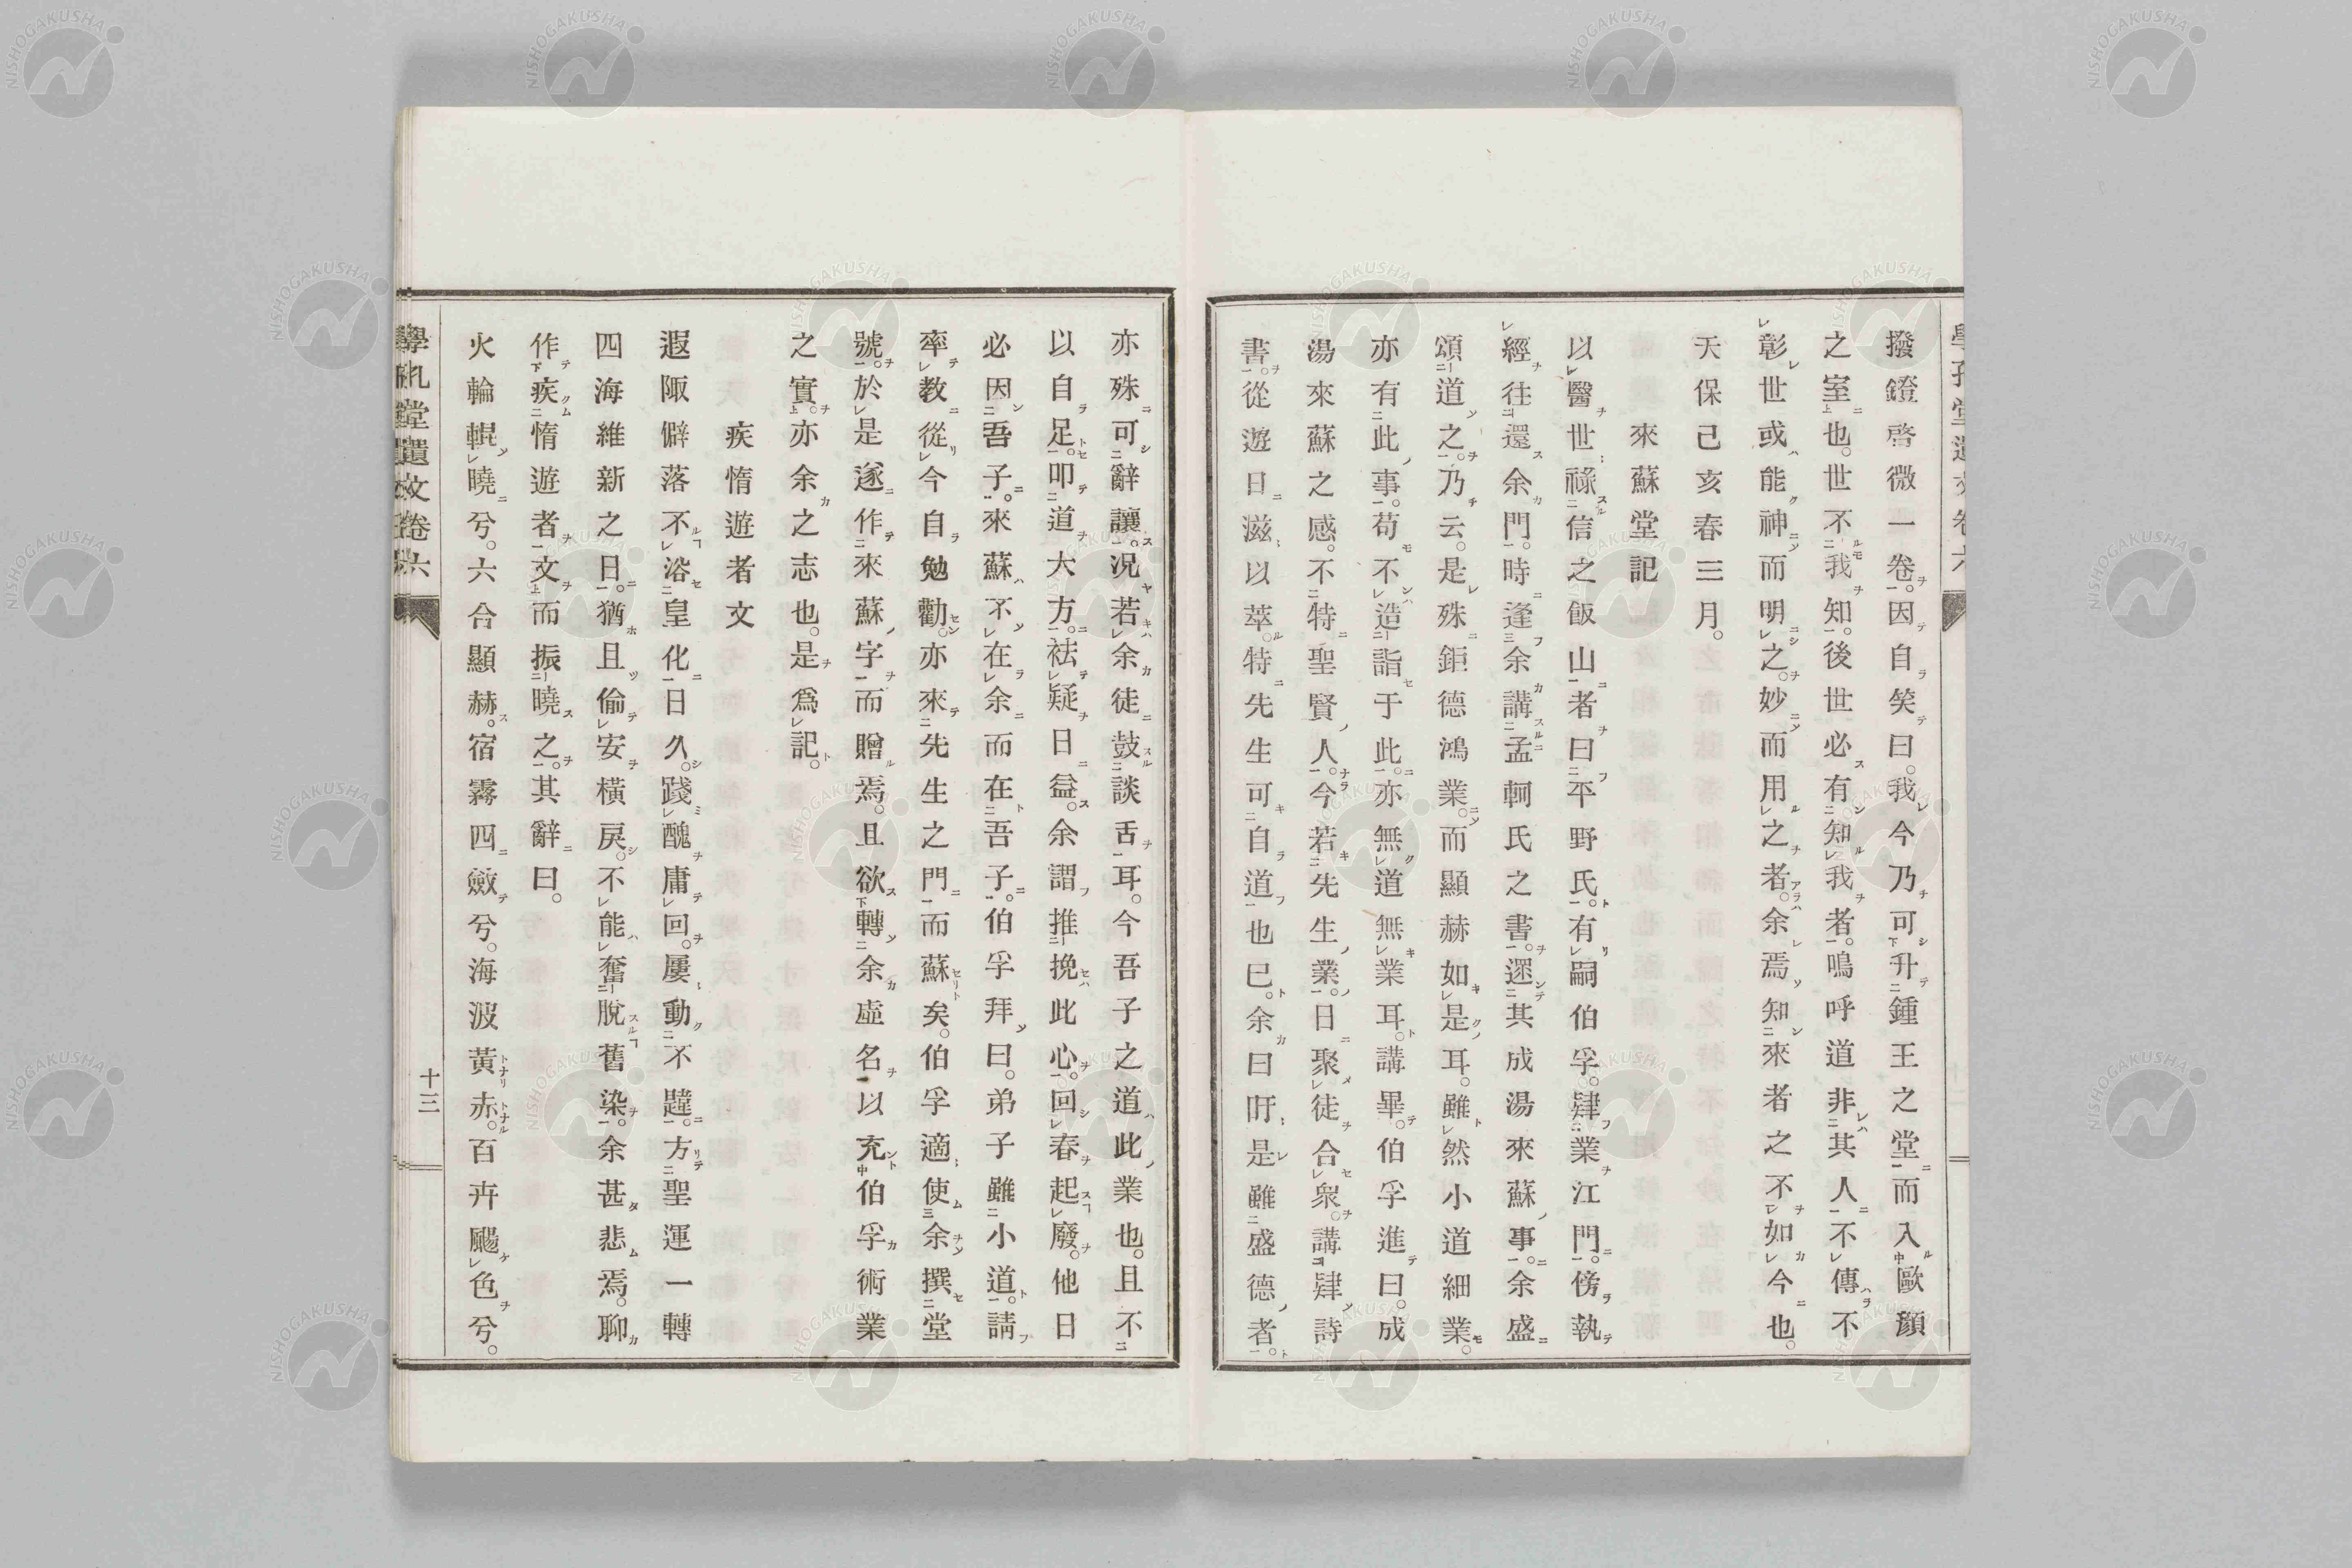 撥鐙啓微一卷。因自笑曰。我今乃可升鍾王之堂而入歐顏
之室也。世不我知。後世必有知我者。嗚呼道非其人不傳不
彰世或能神而明之。妙而用之者。余焉知來者之不如今也。
天保己亥春三月。
來蘇堂記
以醫世祿信之飯山者曰平野氏。有嗣伯孚。肄業江門。傍執
經往還余門。時逢余講孟軻氏之書。還其成湯來蘇事。余盛
頌道之。乃云。是殊鉅德鴻業。而顯赫如是耳。雖然小道細業。
亦有此事。苟不造詣于此。亦無道無業耳。講畢。伯孚進曰。成
湯來蘇之感。不特聖賢人。今若先生業。日聚徒合衆。講肄詩
書。從遊日滋以萃。特先生可自道也已。余曰盱是雖盛德者。
亦殊可辭讓。況若余徒鼓談舌耳。今吾子之道此業也。且不
以自足。叩道大方。祛疑日益。余謂推挽此心。回春起廢。他日
必因吾子。來蘇不在余而在吾子。伯孚拜曰。弟子雖小道。請
率教從今自勉勸。亦來先生之門而蘇矣。伯孚適使余撰堂
號。於是遂作來蘇字而贈焉。且欲轉余虛名以充伯孚術業
之實。亦余之志也。是爲記。
疾惰遊者文
遐陬僻落不浴皇化日久。踐醜庸回。屢動不韙。方聖運一轉
四海維新之日。猶且偷安橫戾。不能奮脫舊染。余甚悲焉。聊
作疾惰遊者文而振曉之。其辭曰。
火輪輥曉兮。六合顯赫。宿霧四斂兮。海波黃赤。百卉颺色兮。
學孔堂遺文卷六
十三
NISHOGAKUSHA